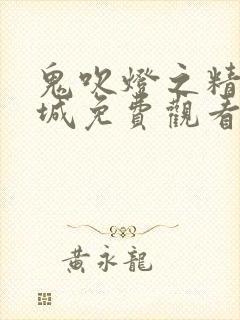 鬼吹燈之精
城免費觀看
黃永龍